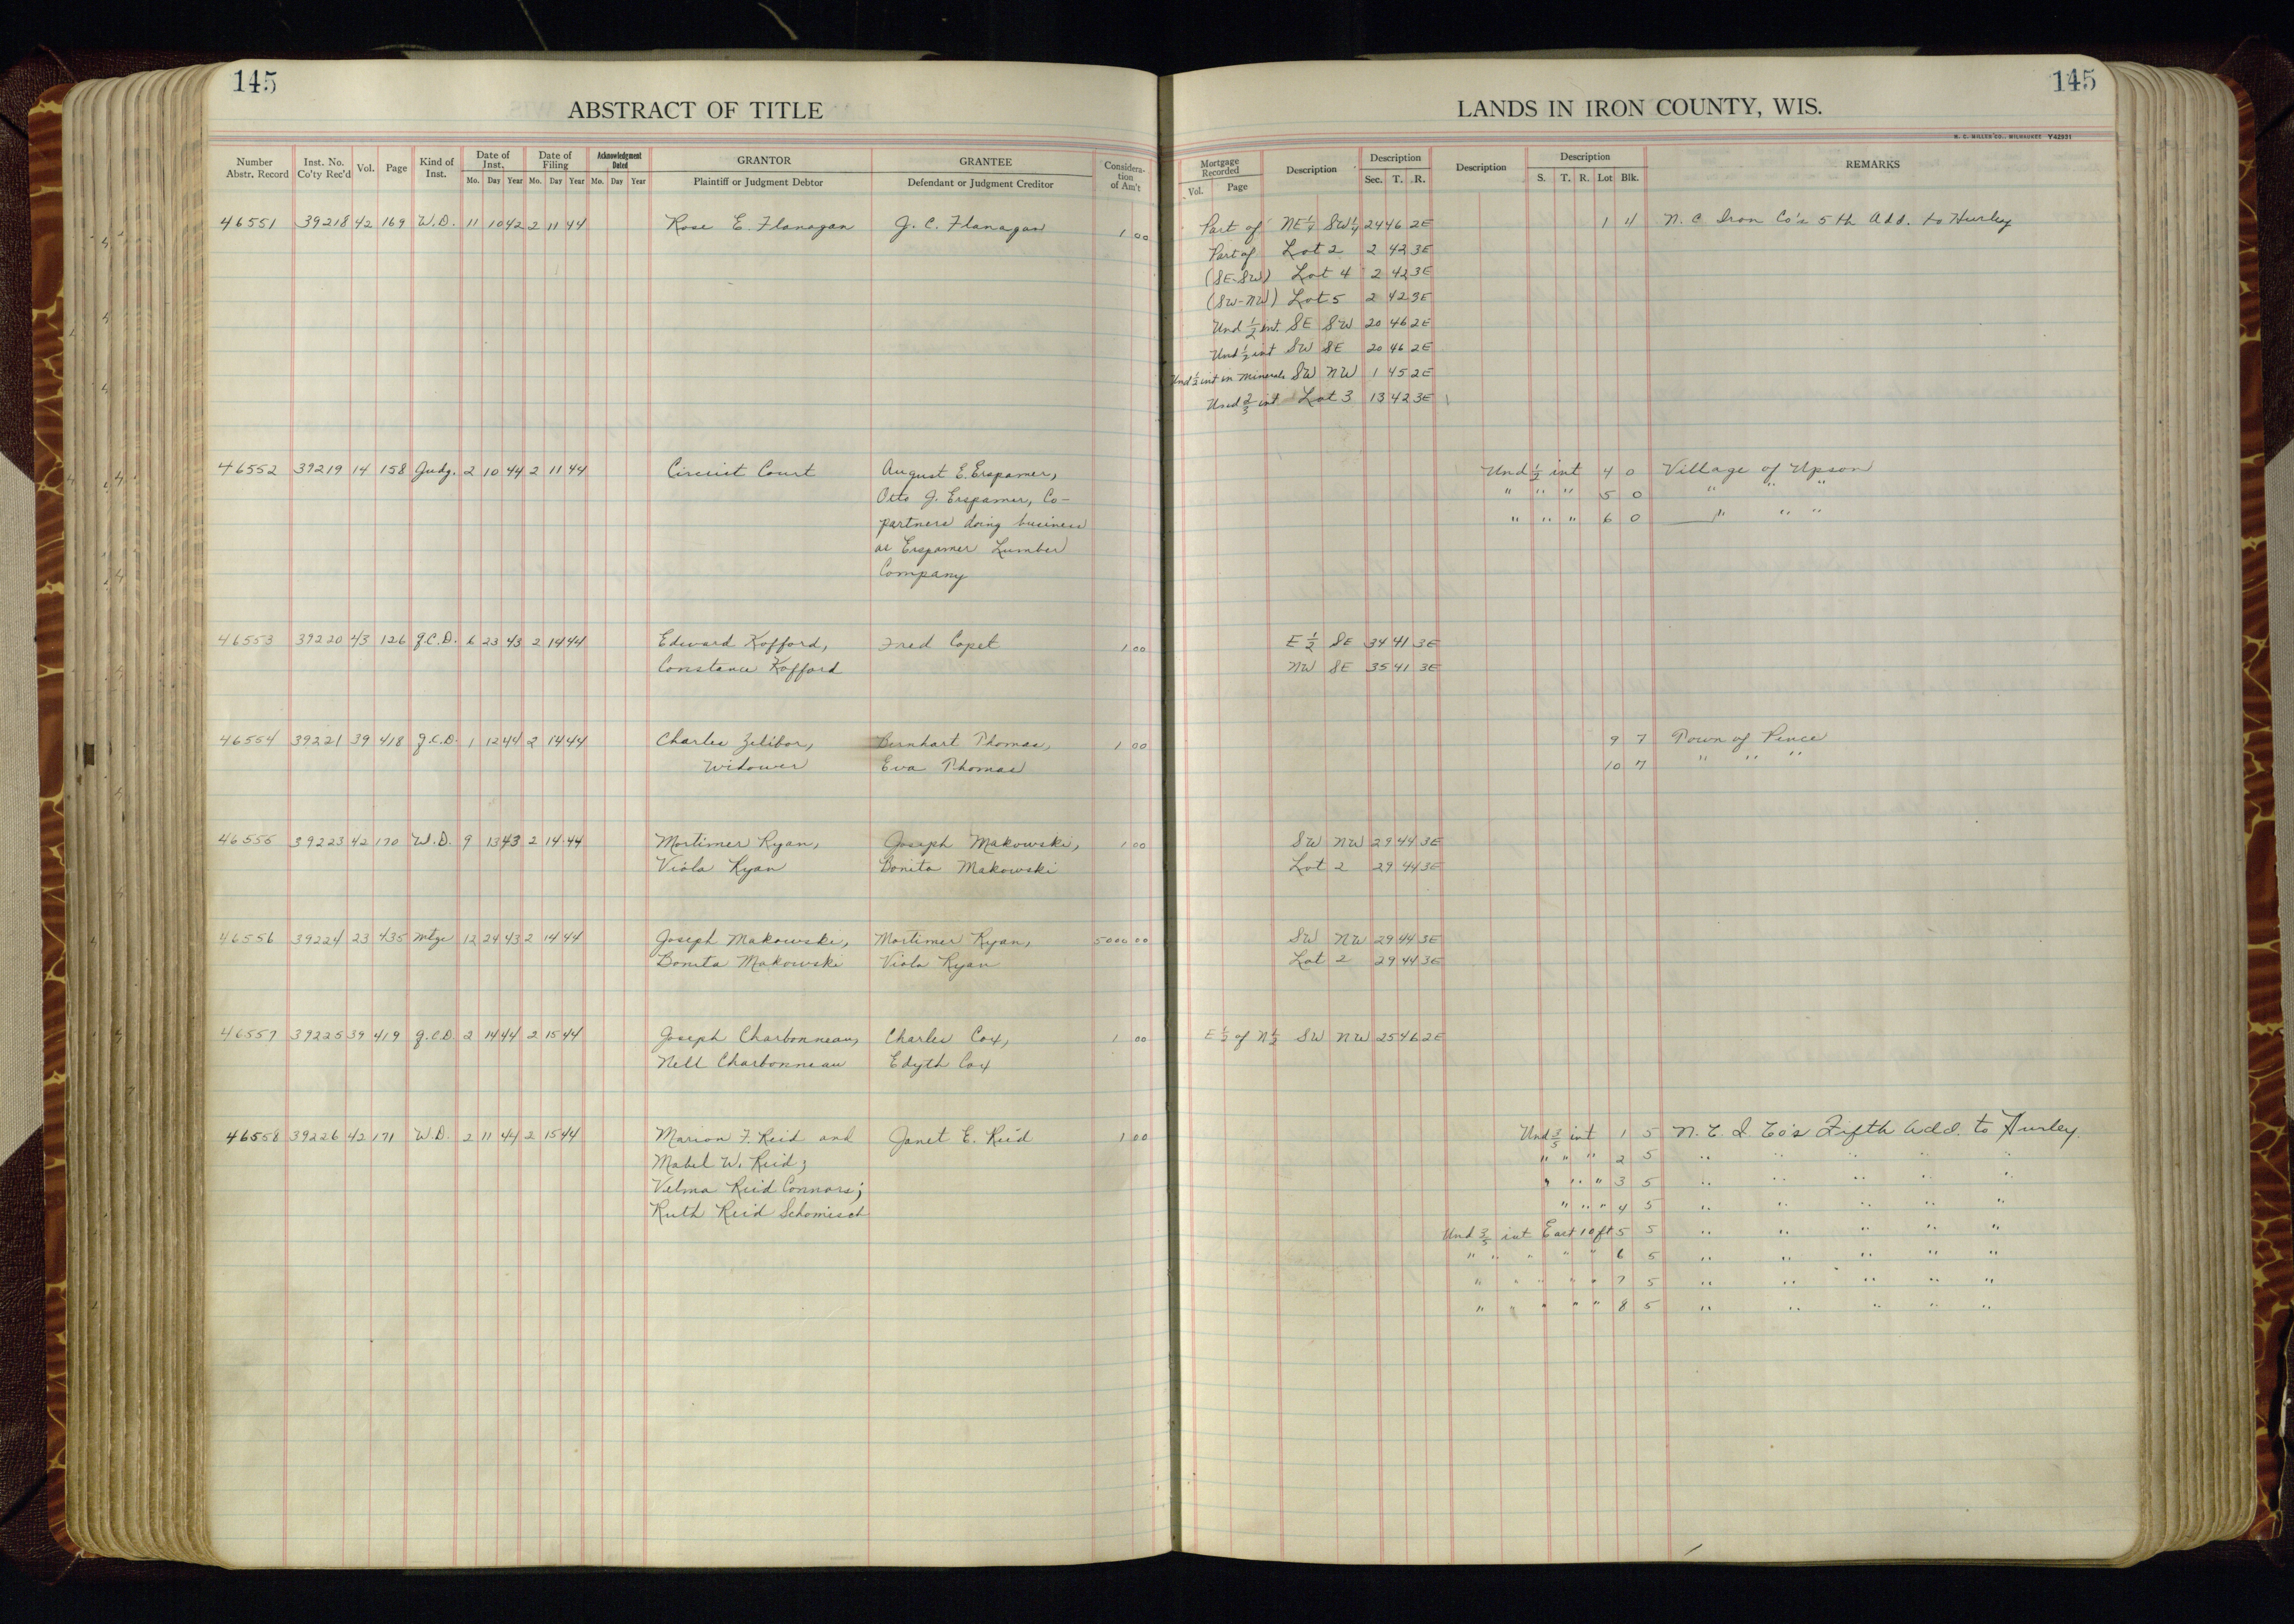 145
ABSTRACT OF TITLE
Number Abstr. Record | Inst. No. Co'ty Rec'd | Vol. | Page | Kind of Inst. | Date of Inst. Mo. Day Year | Date of Filing Mo. Day Year | Acknowledgment Dated Mo. Day Year | GRANTOR Plaintiff or Judgment Debtor | GRANTEE Defendant or Judgment Creditor | Considera-tion of Am't
46551 39218 42 169 W.D. 11 10 42 2 11 44 Rose E. Flanagan J. C. Flanagan 1 00
46552 39219 14 158 Judg. 2 10 44 2 11 44 Circuit Court August E. Erspamer,
Otto J. Erspamer, Co-
partners doing business
as Erspamer Lumber
Company
46553 39220 43 126 Q.C.D. 6 23 43 2 14 44 Edward Kofford, Fred Copet 1 00
Constance Kofford
46554 39221 39 418 Q.C.D. 1 12 44 2 14 44 Charles Zelibor, Bernhart Thomas, 1 00
Widower Eva Thomas
46555 39223 42 170 W.D. 9 13 43 2 14 44 Mortimer Ryan, Joseph Makowski, 1 00
Viola Ryan Bonita Makowski
46556 39224 23 435 Mtge 12 24 43 2 14 44 Joseph Makowski, Mortimer Ryan, 5000 00
Bonita Makowski Viola Ryan
46557 39225 39 419 Q.C.D. 2 14 44 2 15 44 Joseph Charbonneau, Charles Cox, 1 00
Nell Charbonneau Edyth Cox
46558 39226 42 171 W.D. 2 11 44 2 15 44 Marion F. Reid and Janet E. Reid 1 00
Mabel W. Reid;
Velma Reid Connors;
Ruth Reid Schomisch
145
LANDS IN IRON COUNTY, WIS.
H. C. MILLER CO., MILWAUKEE Y42931
Mortgage Recorded Vol. Page | Description | Description Sec. T. R. | Description | Description S. T. R. Lot Blk. | REMARKS
Part of NE¼ SW¼ 24 46 2E 1 11 N. C. Iron Co's 5th Add. to Hurley
Part of Lot 2 2 42 3E
(SE-SW) Lot 4 2 42 3E
(SW-NW) Lot 5 2 42 3E
Und ½ int. SE SW 20 46 2E
Und ½ int SW SE 20 46 2E
Und ½ int in Minerals SW NW 1 45 2E
Und ⅔ int Lot 3 13 42 3E
Und ½ int 4 0 Village of Upson
" " " 5 0 " " "
" " " 6 0 " " "
E ½ SE 34 41 3E
NW SE 35 41 3E
9 7 Town of Pence
10 7 " " "
SW NW 29 44 3E
Lot 2 29 44 3E
SW NW 29 44 3E
Lot 2 29 44 3E
E ½ of N ½ SW NW 25 46 2E
Und ⅗ int 1 5 N. C. I. Co's Fifth Add. to Hurley.
" " " 2 5 " " " " "
" " " 3 5 " " " " "
" " " 4 5 " " " " "
Und ⅗ int East 10 ft 5 5 " " " " "
" " " " " 6 5 " " " " "
" " " " " 7 5 " " " " "
" " " " " 8 5 " " " " "